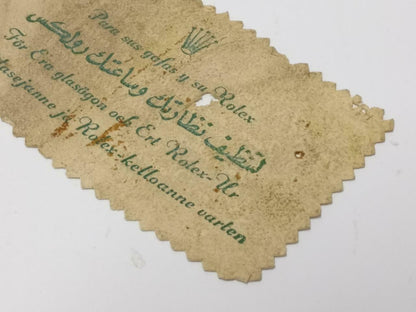 Para sus gafas y su Rolex
لتنظيف نظارتك وساعتك رولكس
För Era glasögon och Ert Rolex-Ur
Rolex-kelloanne varten